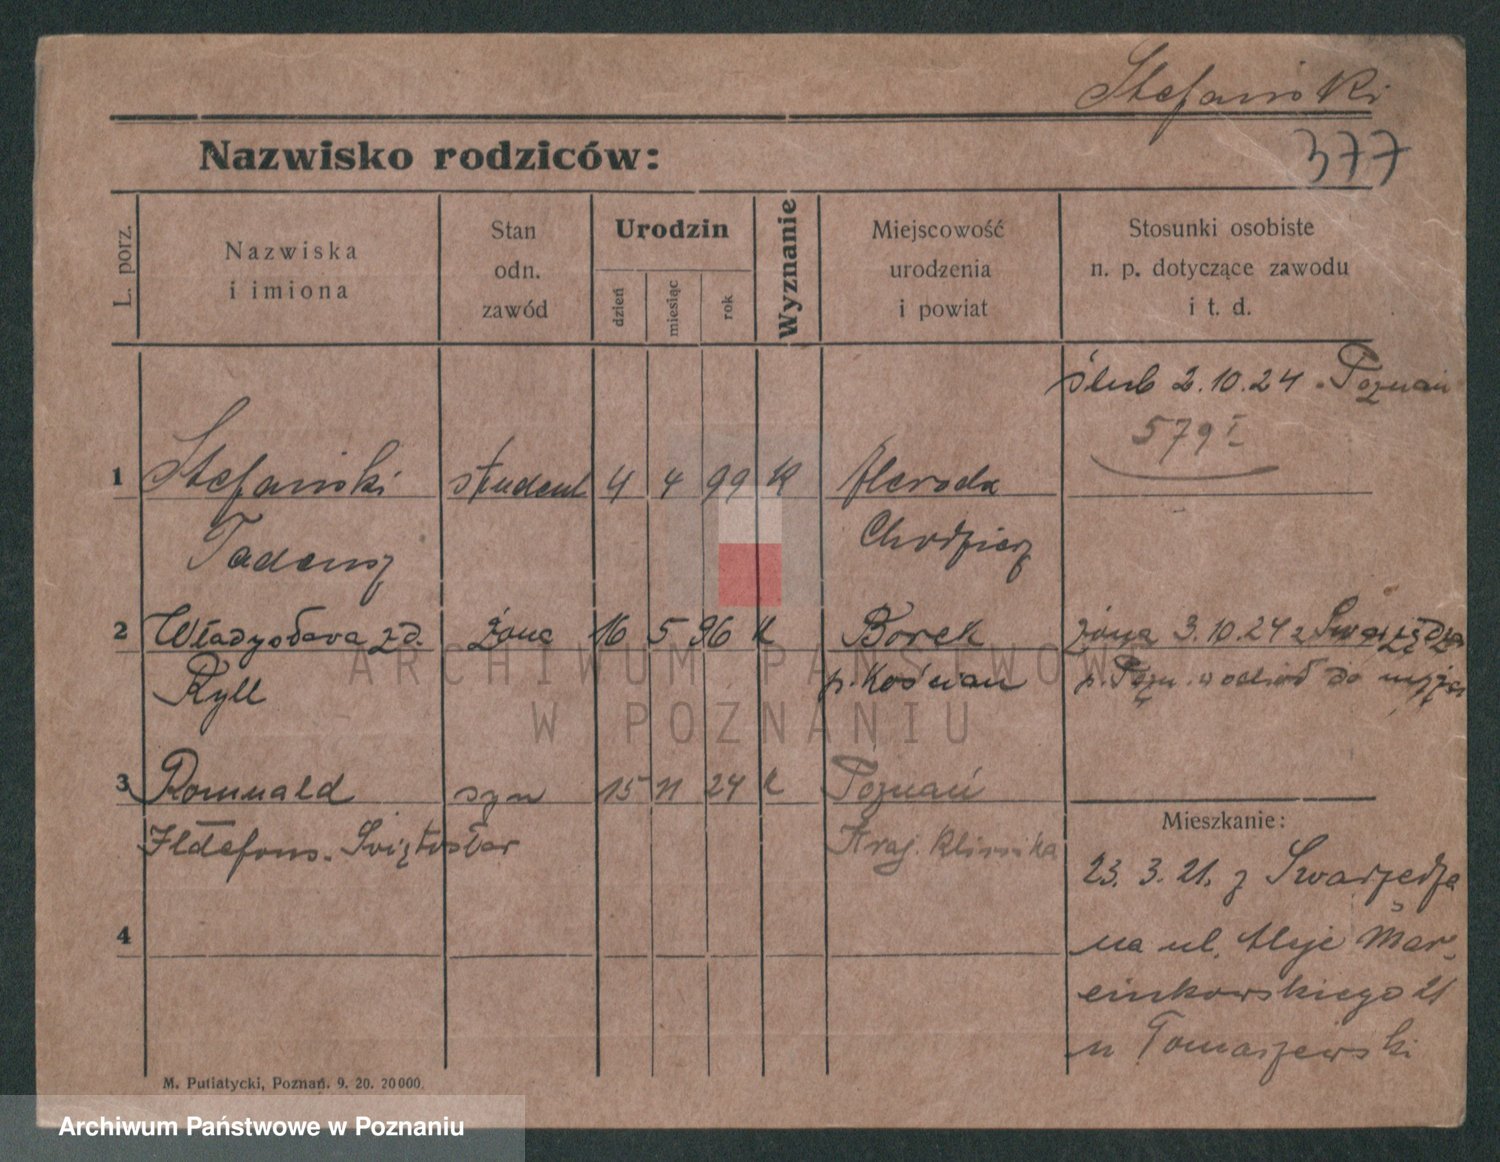 Stefański
377
Nazwisko rodziców:
L. porz.
Nazwiska
i imiona
Stan
odn.
zawód
Urodzin
dzień
miesiąc
rok
Wyznanie
Miejscowość
urodzenia
i powiat
Stosunki osobiste
n. p. dotyczące zawodu
i t. d.
ślub 2.10.24 - Poznań
579 I
1 Stefański student 4 4 99 K
Tadeusz Chodzież
2 Władysława zd. żona 16 5 96 K Borek żona 3.10.24 z Swarzędza
Ryll p. Kościan p. Pozn. do męża
3 Romuald syn 15 11 24 K Poznań
Ildefons. Świętosław Kraj. Klinika
Mieszkanie:
23. 3. 21. z Swarzędza
na ul. Aleje Mar-
cinkowskiego 21
u Tomaszewski
4
M. Putiatycki, Poznań. 9. 20. 20000.
ARCHIWUM PAŃSTWOWE
W POZNANIU
Archiwum Państwowe w Poznaniu